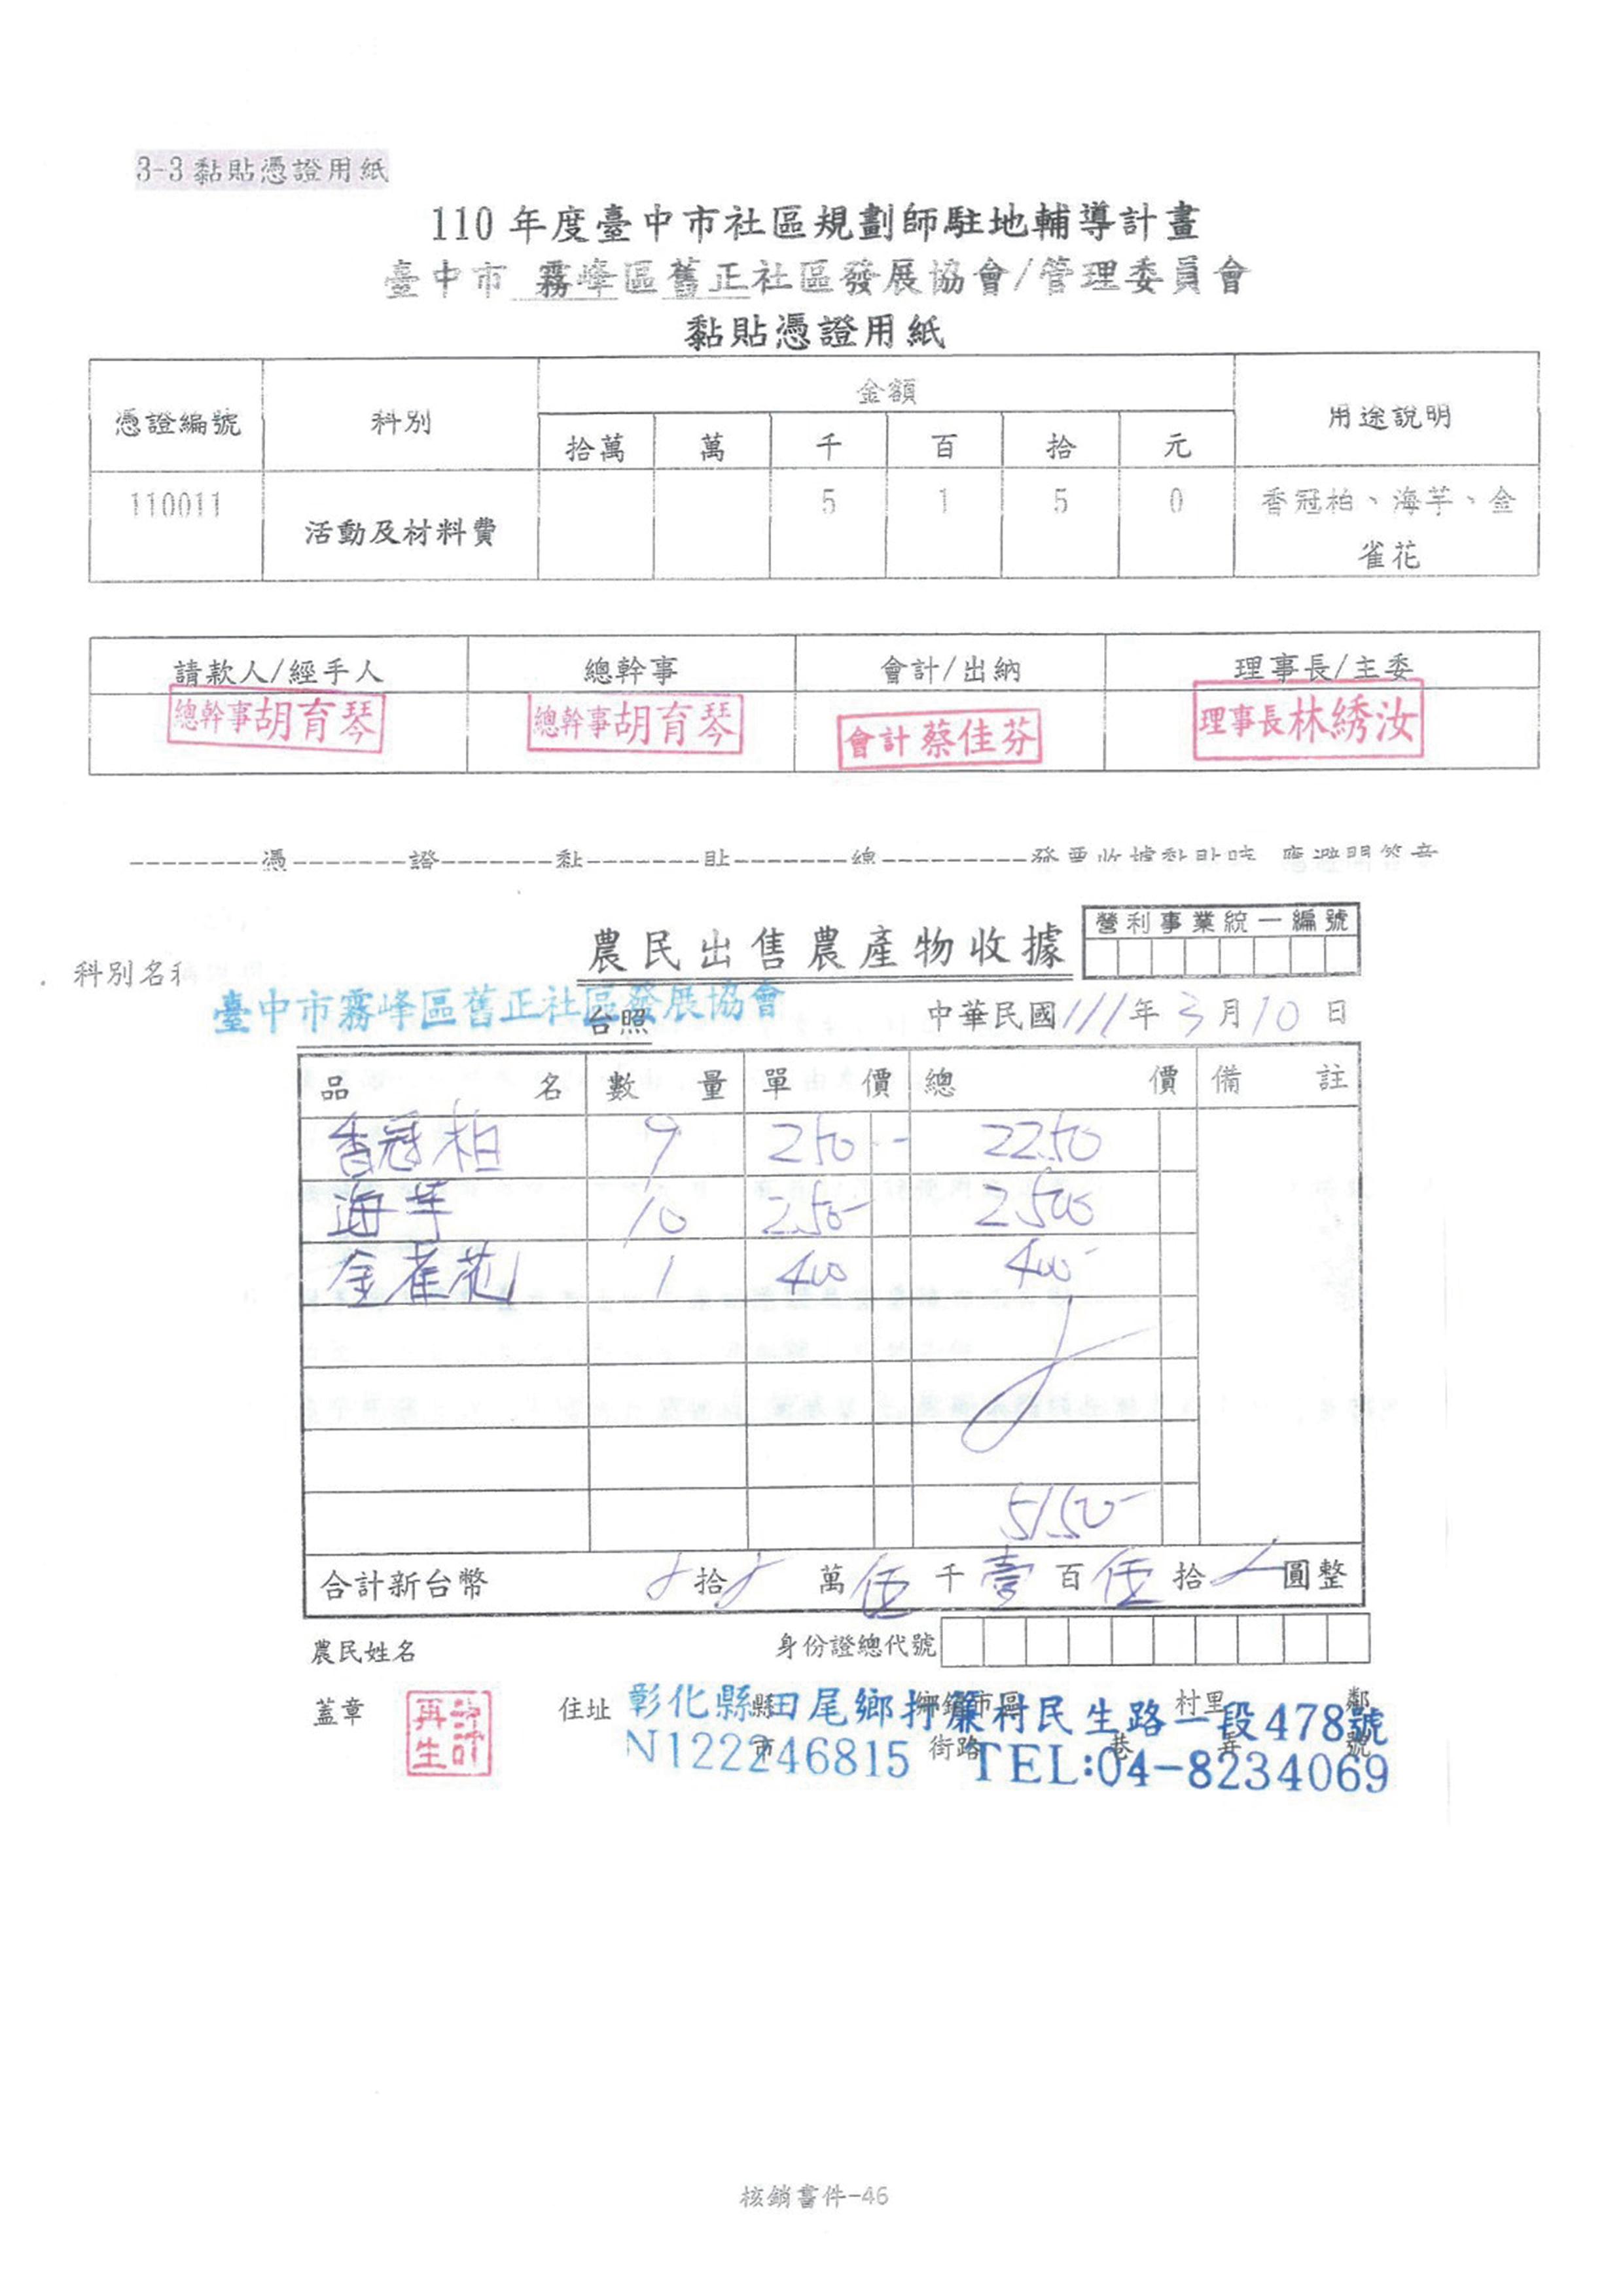 3-3黏貼憑證用紙
110 年度臺中市社區規劃師駐地輔導計畫
臺中市 霧峰區舊正社區發展協會/管理委員會
黏貼憑證用紙
憑證編號 科別 金額 用途說明
拾萬 萬 千 百 拾 元
110011 活動及材料費 5 1 5 0 香冠柏、海芋、金
雀花
請款人/經手人 總幹事 會計/出納 理事長/主委
總幹事胡育琴 總幹事胡育琴 會計蔡佳芬 理事長林綉汝
--------憑-------證-------黏-------貼-------線---------發票收據黏貼時
農民出售農產物收據 營利事業統一編號
科別名稱
臺中市霧峰區舊正社區發展協會 台照 中華民國111年3月10日
品名 數量 單價 總價 備註
香冠柏 9 250- 2250
海芋 10 250- 2500
金雀花 1 400 400-
5150-
合計新台幣 拾 萬伍千壹百伍拾 圓整
農民姓名 身份證總代號
蓋章 許再生 住址 縣市 鄉鎮市區 村里 鄰
街路 巷 弄 號
彰化縣田尾鄉打簾村民生路一段478號
N122246815 TEL:04-8234069
核銷書件-46